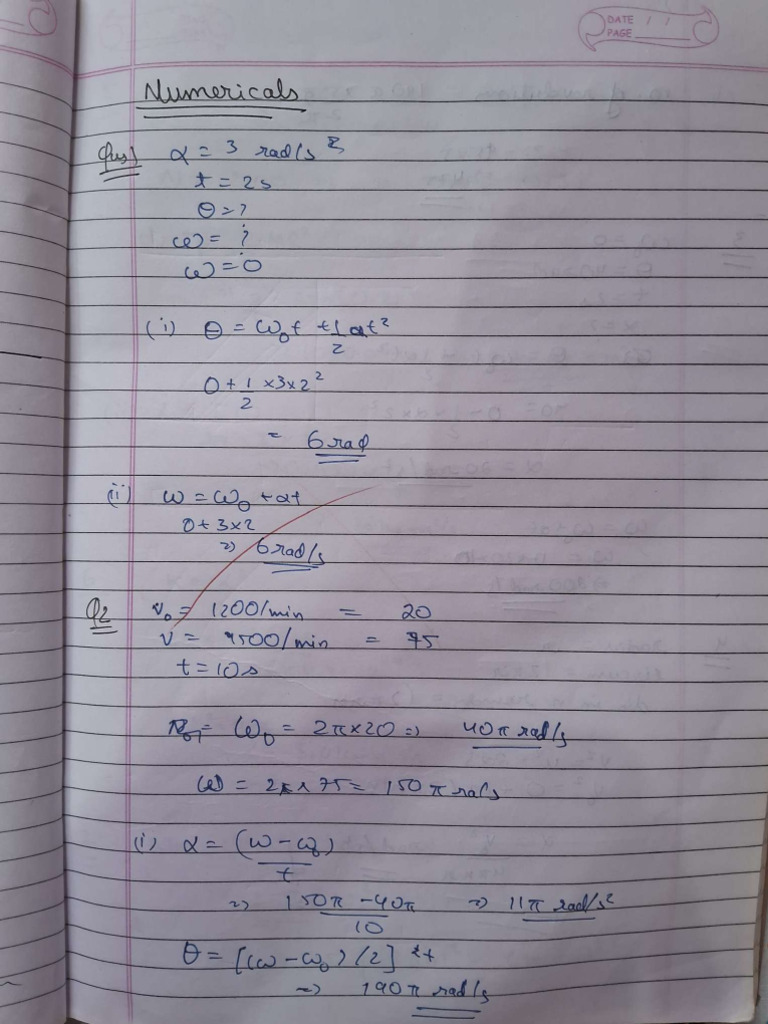 DATE / /
PAGE
Numericals
Ques) α = 3 rad/s²
t = 2s
θ = ?
ω = ?
ω = 0
(i) θ = ω₀t + 1/2 αt²
0 + 1/2 × 3 × 2²
= 6 rad
(ii) ω = ω₀ + αt
0 + 3×2
⇒ 6 rad/s
Q2 ν₀ = 1200/min = 20
ν = 4500/min = 75
t = 10s
ω₀ = 2π×20 ⇒ 40π rad/s
ω = 2π × 75 = 150π rad/s
(i) α = (ω - ω₀)/t
⇒ 150π - 40π/10 ⇒ 11π rad/s²
θ = [(ω - ω₀)/2] t
⇒ 190π rad/s